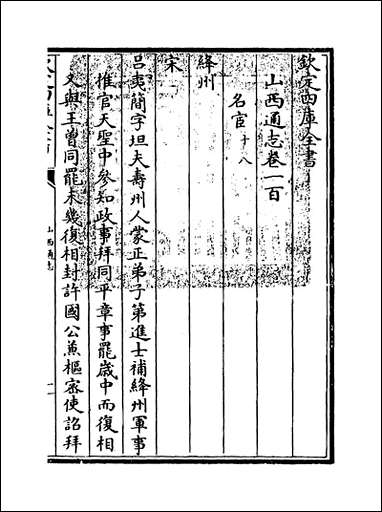 欽定四庫全書
山西通志卷一百
名宦十八
絳州
宋
呂夷簡字坦夫壽州人蒙正弟子第進士補絳州軍事
推官天聖中參知政事拜同平章事罷歲中而復相
又與王曾同罷未幾復相封許國公兼樞密使詔拜
山西通志
一